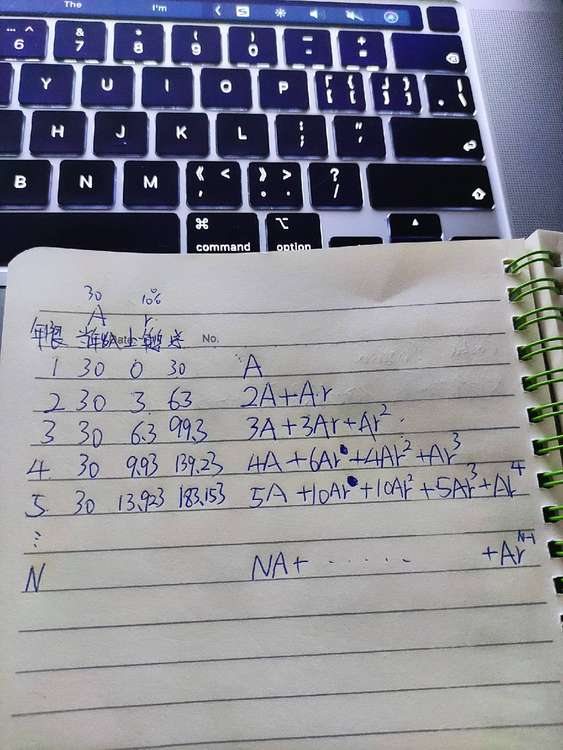 The I'm
^ & * ( ) — +
6 7 8 9 0 - =
Y U I O P
H J K L : ;
B N M 《 < , 》 > . ? /
⌘ ⌥
command option
30 10%
A r
年限
No.
1 30 0 30 A
2 30 3 63 2A+Ar
3 30 6.3 99.3 3A+3Ar+Ar²
4 30 9.93 139.23 4A+6Ar+4Ar²+Ar³
5 30 13.923 183.153 5A+10Ar+10Ar²+5Ar³+Ar⁴
⋮
N NA+ ...... +Ar^(N-1)